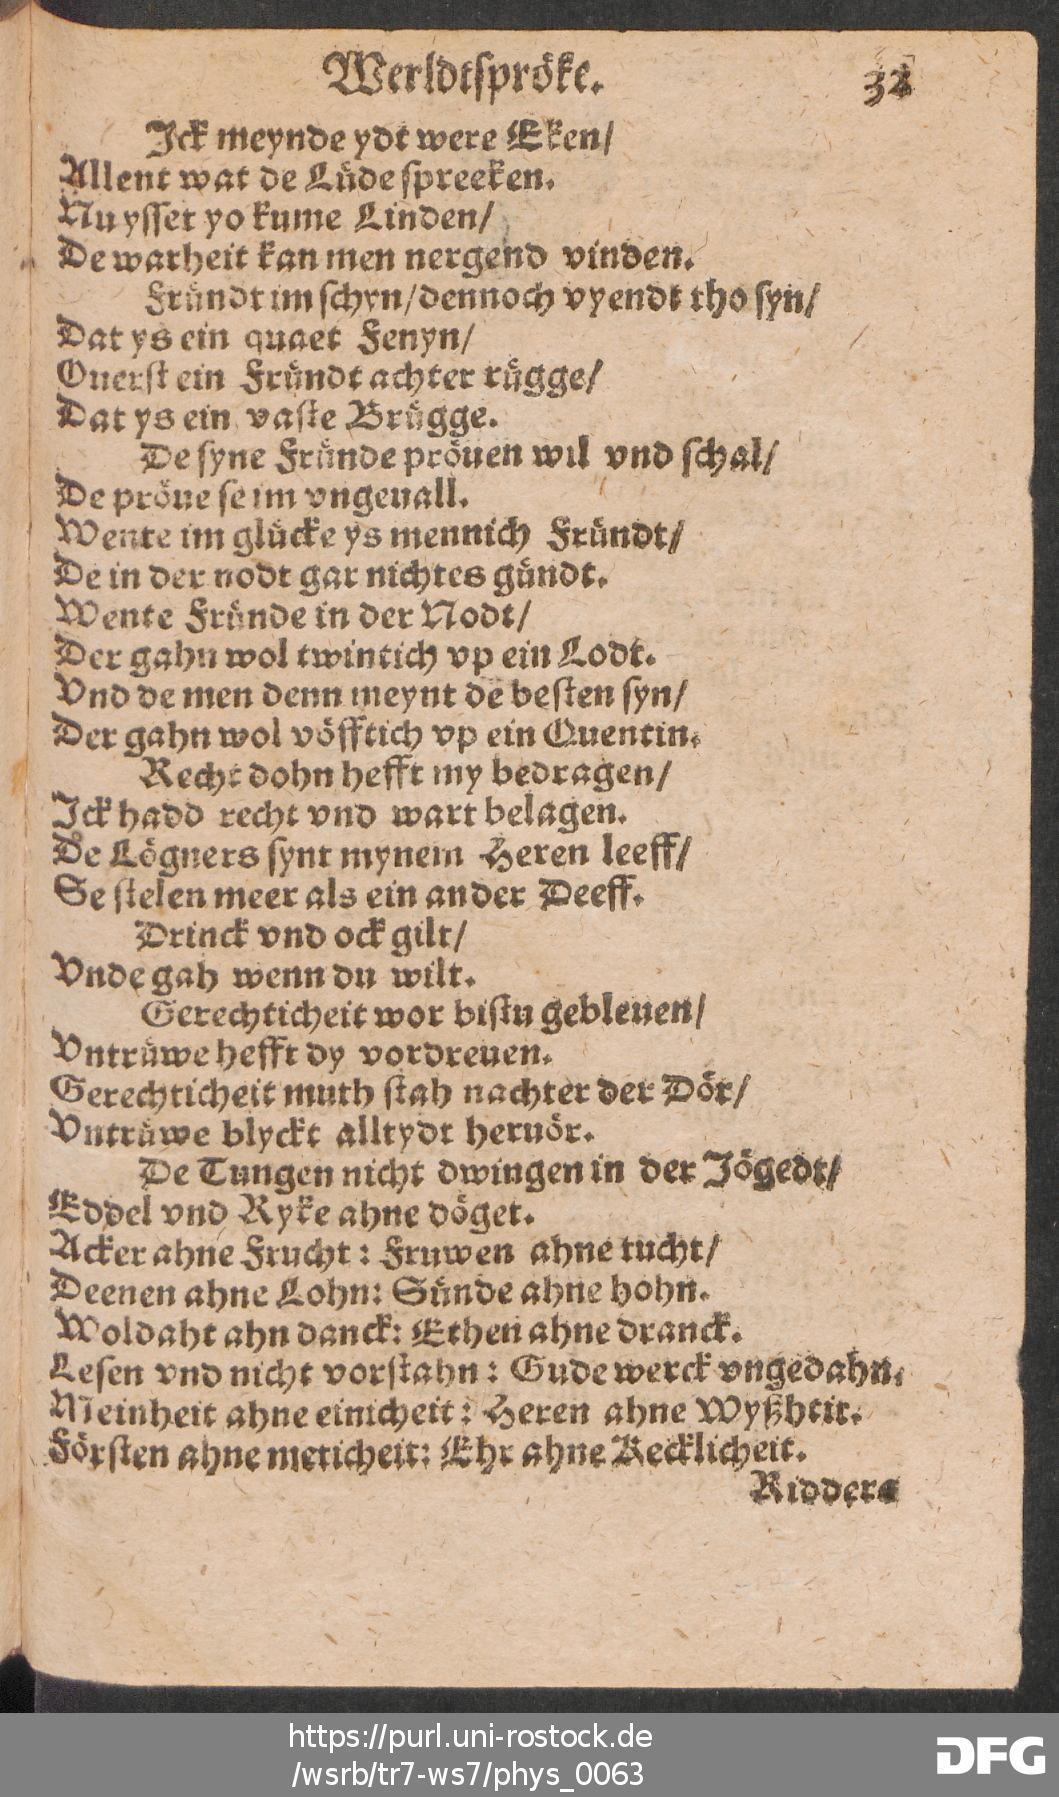 Werldtspröke. 32
Ick meynde ydt were Eken/
Allent wat de Lüde spreeken.
Nu ysset yo kume Linden/
De warheit kan men nergend vinden.
Fründt im schyn/ dennoch vyendt tho syn/
Dat ys ein quaet Fenyn/
Ouerst ein Fründt achter rügge/
Dat ys ein vaste Brügge.
De syne Fründe pröuen wil vnd schal/
De pröue se im vngeuall.
Wente im glücke ys mennich Fründt/
De in der nodt gar nichtes gündt.
Wente Fründe in der Nodt/
Der gahn wol twintich vp ein Lodt.
Vnd de men denn meynt de besten syn/
Der gahn wol vöfftich vp ein Quentin.
Recht dohn hefft my bedragen/
Ick hadd recht vnd wart belagen.
De Lögners synt mynem Heren leeff/
Se stelen meer als ein ander Deeff.
Drinck vnd ock gilt/
Vnde gah wenn du wilt.
Gerechticheit wor bistu gebleuen/
Vntrüwe hefft dy vordreuen.
Gerechticheit muth stah nachter der Dör/
Vntrüwe blyckt alltydt heruör.
De Tungen nicht dwingen in der Jögedt/
Eddel vnd Ryke ahne döget.
Acker ahne Frucht: Fruwen ahne tucht/
Deenen ahne Lohn: Sünde ahne hohn.
Woldaht ahn danck: Ethen ahne dranck.
Lesen vnd nicht vorstahn: Gude werck vngedahn.
Meinheit ahne einicheit: Heren ahne Wyßhtit.
Försten ahne meticheit: Ehr ahne Recklicheit.
Ridder
https://purl.uni-rostock.de
/wsrb/tr7-ws7/phys_0063
DFG